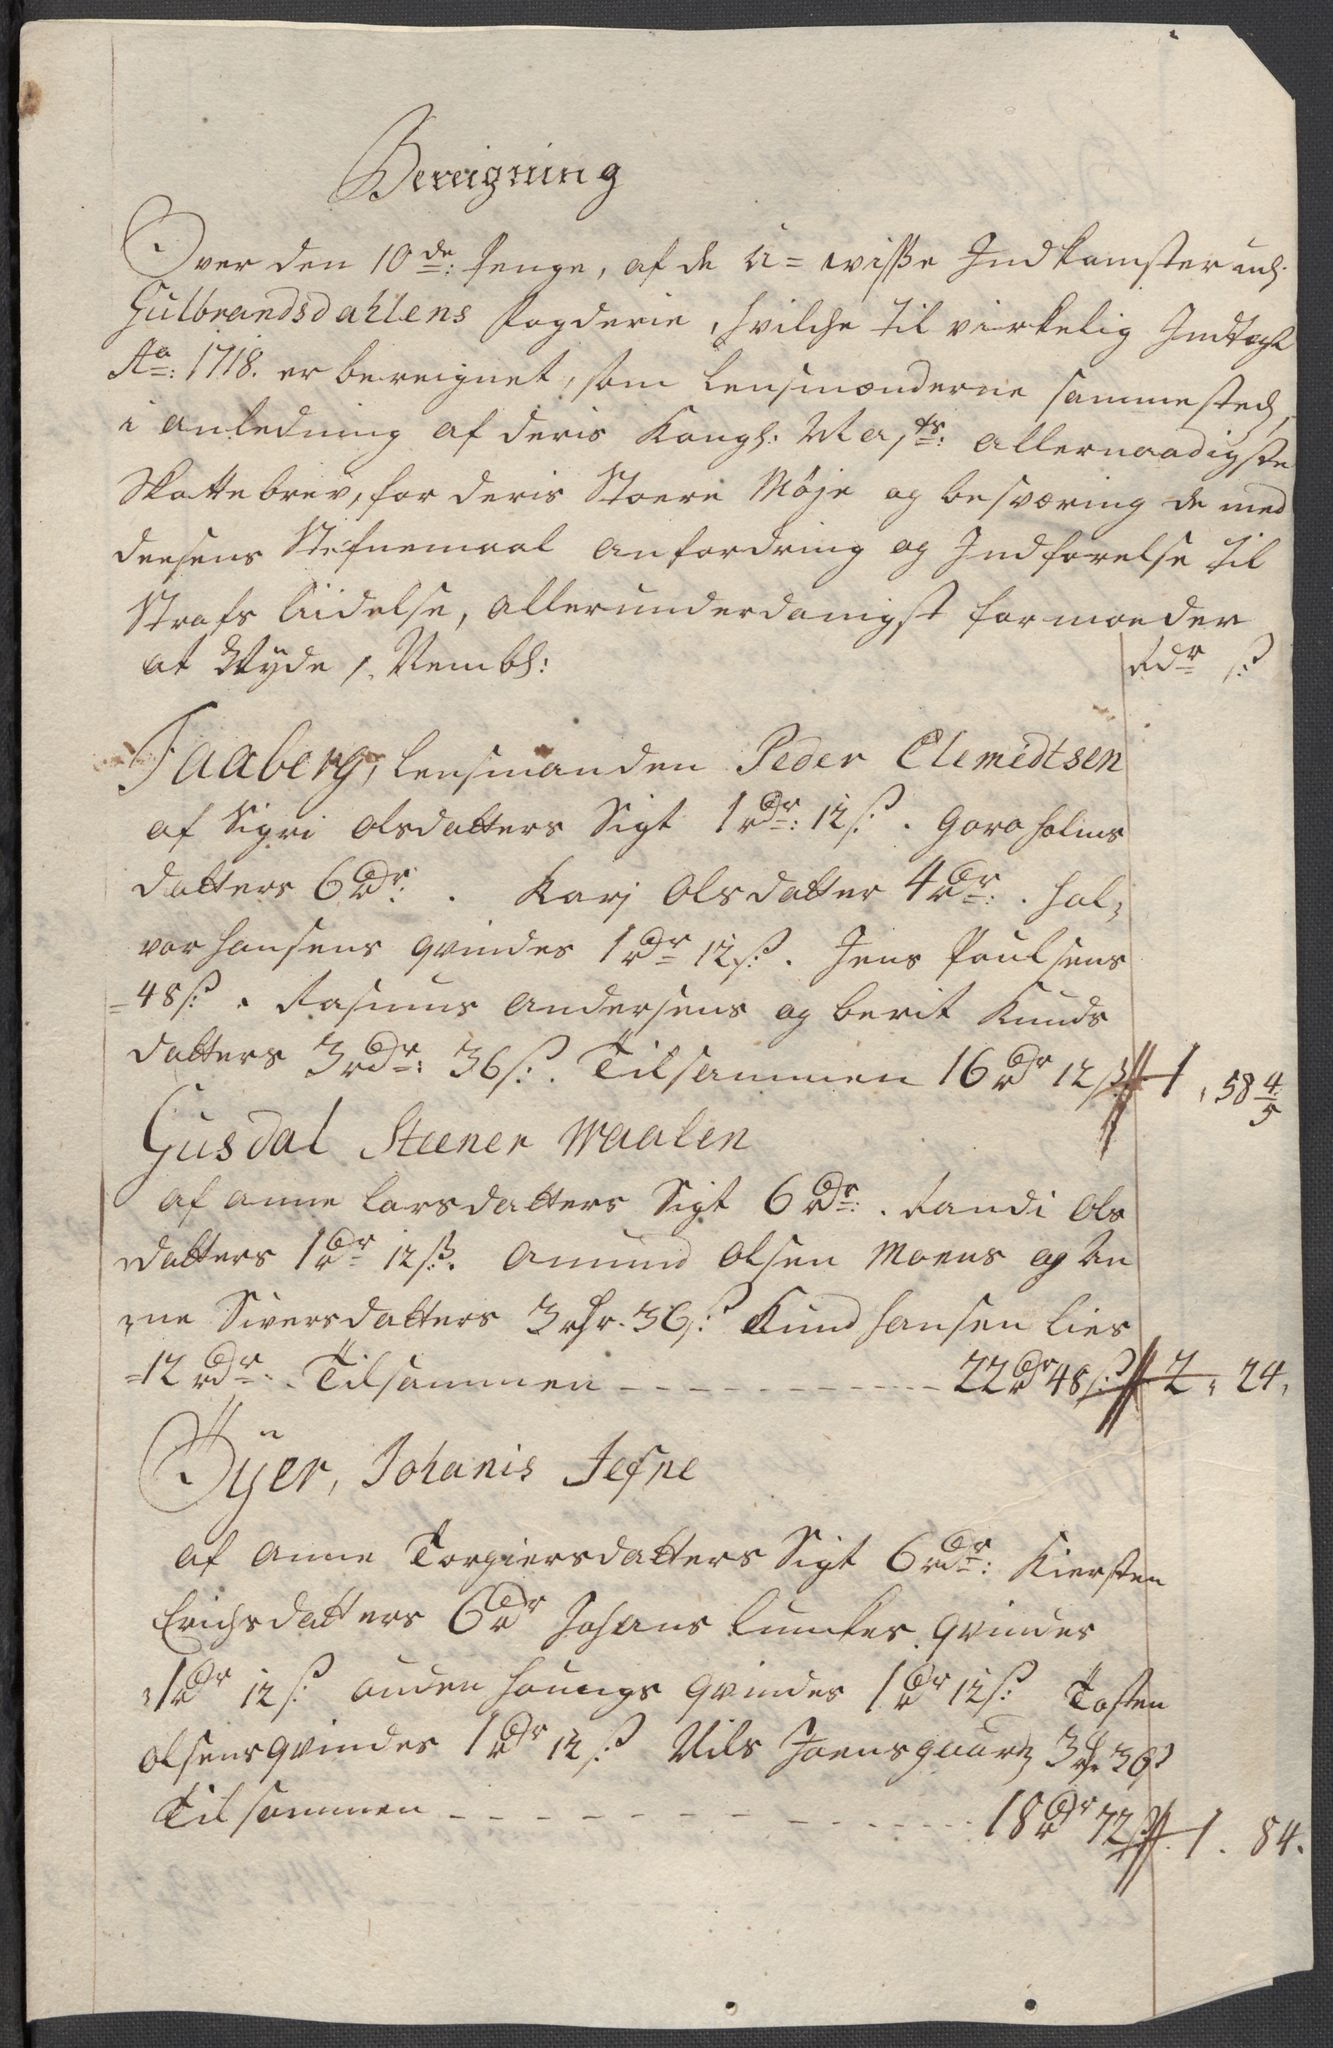 Bereigning
Over den 10de: Penge, af de U= wisse Indkomster udj
Gulbrandsdahlens Fogderie, hvilche til virkelig Indtegt
Ao: 1718. er bereignet, som Lensmænderne sammesteds,
i anledning af deris Kongl: Mayts: allernaadigste
Skattebrev, for deris Stoere Møje og besværing de med
deesens Stefnemaal anfordring og Indførelse til
Strafs Liidelse, allerunderdanigst formoeder
at Nyde, Nembl: Rdr ß
Faaberg, Lensmanden Peder Clemidtsen
af Sigri Olsdatters Sigt 1 rdr: 12 ß. Goro Holms
datters 6 rdr. Karj Olsdatter 4 rdr: . Hal=
vor Hansens qvindes 1 rdr 12 ß. Jens Poulsens
=48 ß. Rasmus Andersens og berit Knuds
datters 3 rdr: 36 ß. Tilsammen 16 rdr 12 ß 1 , 58 4/5
Gusdal Steener Waalen
af Anne Larsdatters Sigt 6 rdr: . Randi Ols
datters 1 rdr 12 ß. Amund Olsen Moens og An
=ne Siversdatters 3 rdr. 36 ß Knud Hansen Lies
=12 rdr. Tilsammen 22 rdr 48 ß 2 , 24,
Öyer, Johanis Jefne
af Anne Torgiersdatters Sigt 6 rdr: Kiersten
Erichsdatters 6 rdr Johans qvindes
=1 rdr 12 ß Auden qvindes 1 rdr 12 ß Tosten
Olsens qvindes 1 rdr 12 ß Nils Joensguard 3 rdr 36 ß
Tilsammen 18 rdr 72 ß 1 . 84.